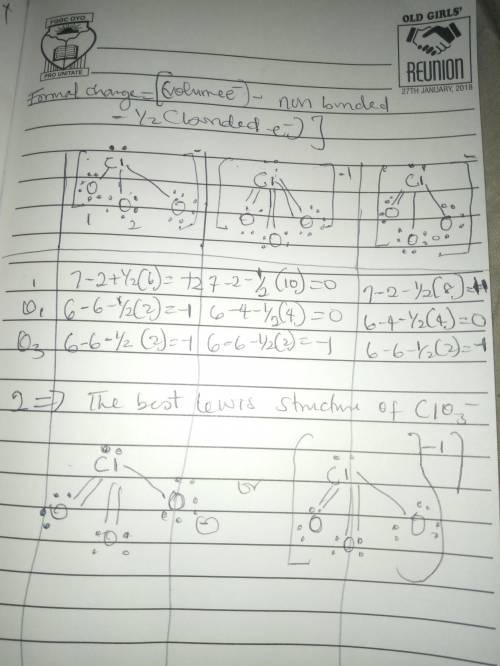 FGGC OYO
PRO UNITATE
OLD GIRLS'
REUNION
27TH JANUARY, 2018
Formal change = [(volume e⁻) - non bonded
- 1/2 (bonded e⁻)]
Cl Cl -1 Cl
O O O O O O O O
1 2
1 7-2+1/2(6) = +2 7-2-1/2(10) = 0 7-2-1/2(8) = +1
O₁ 6-6-1/2(2) = -1 6-4-1/2(4) = 0 6-4-1/2(4) = 0
O₃ 6-6-1/2(2) = -1 6-6-1/2(2) = -1 6-6-1/2(2) = -1
2 => The best lewis structure of ClO₃⁻
Cl or Cl -1
O O O O O O